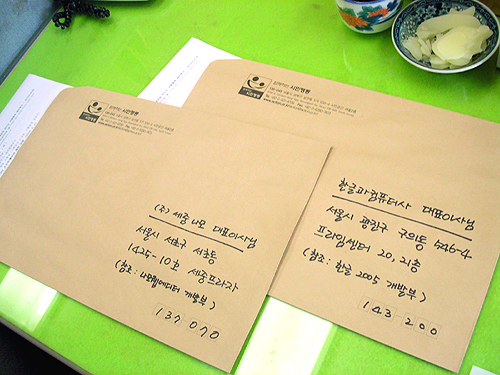 시민행동
(주) 세중나모 대표이사님
서울시 서초구 서초동
1425-10호 세중프라자
(참조 : 나모웹에디터 개발부)
137 070
시민행동
한글과컴퓨터사 대표이사님
서울시 광진구 구의동 546-4
프라임센터 20, 21층
(참조 : 한글 2005 개발부)
143-200